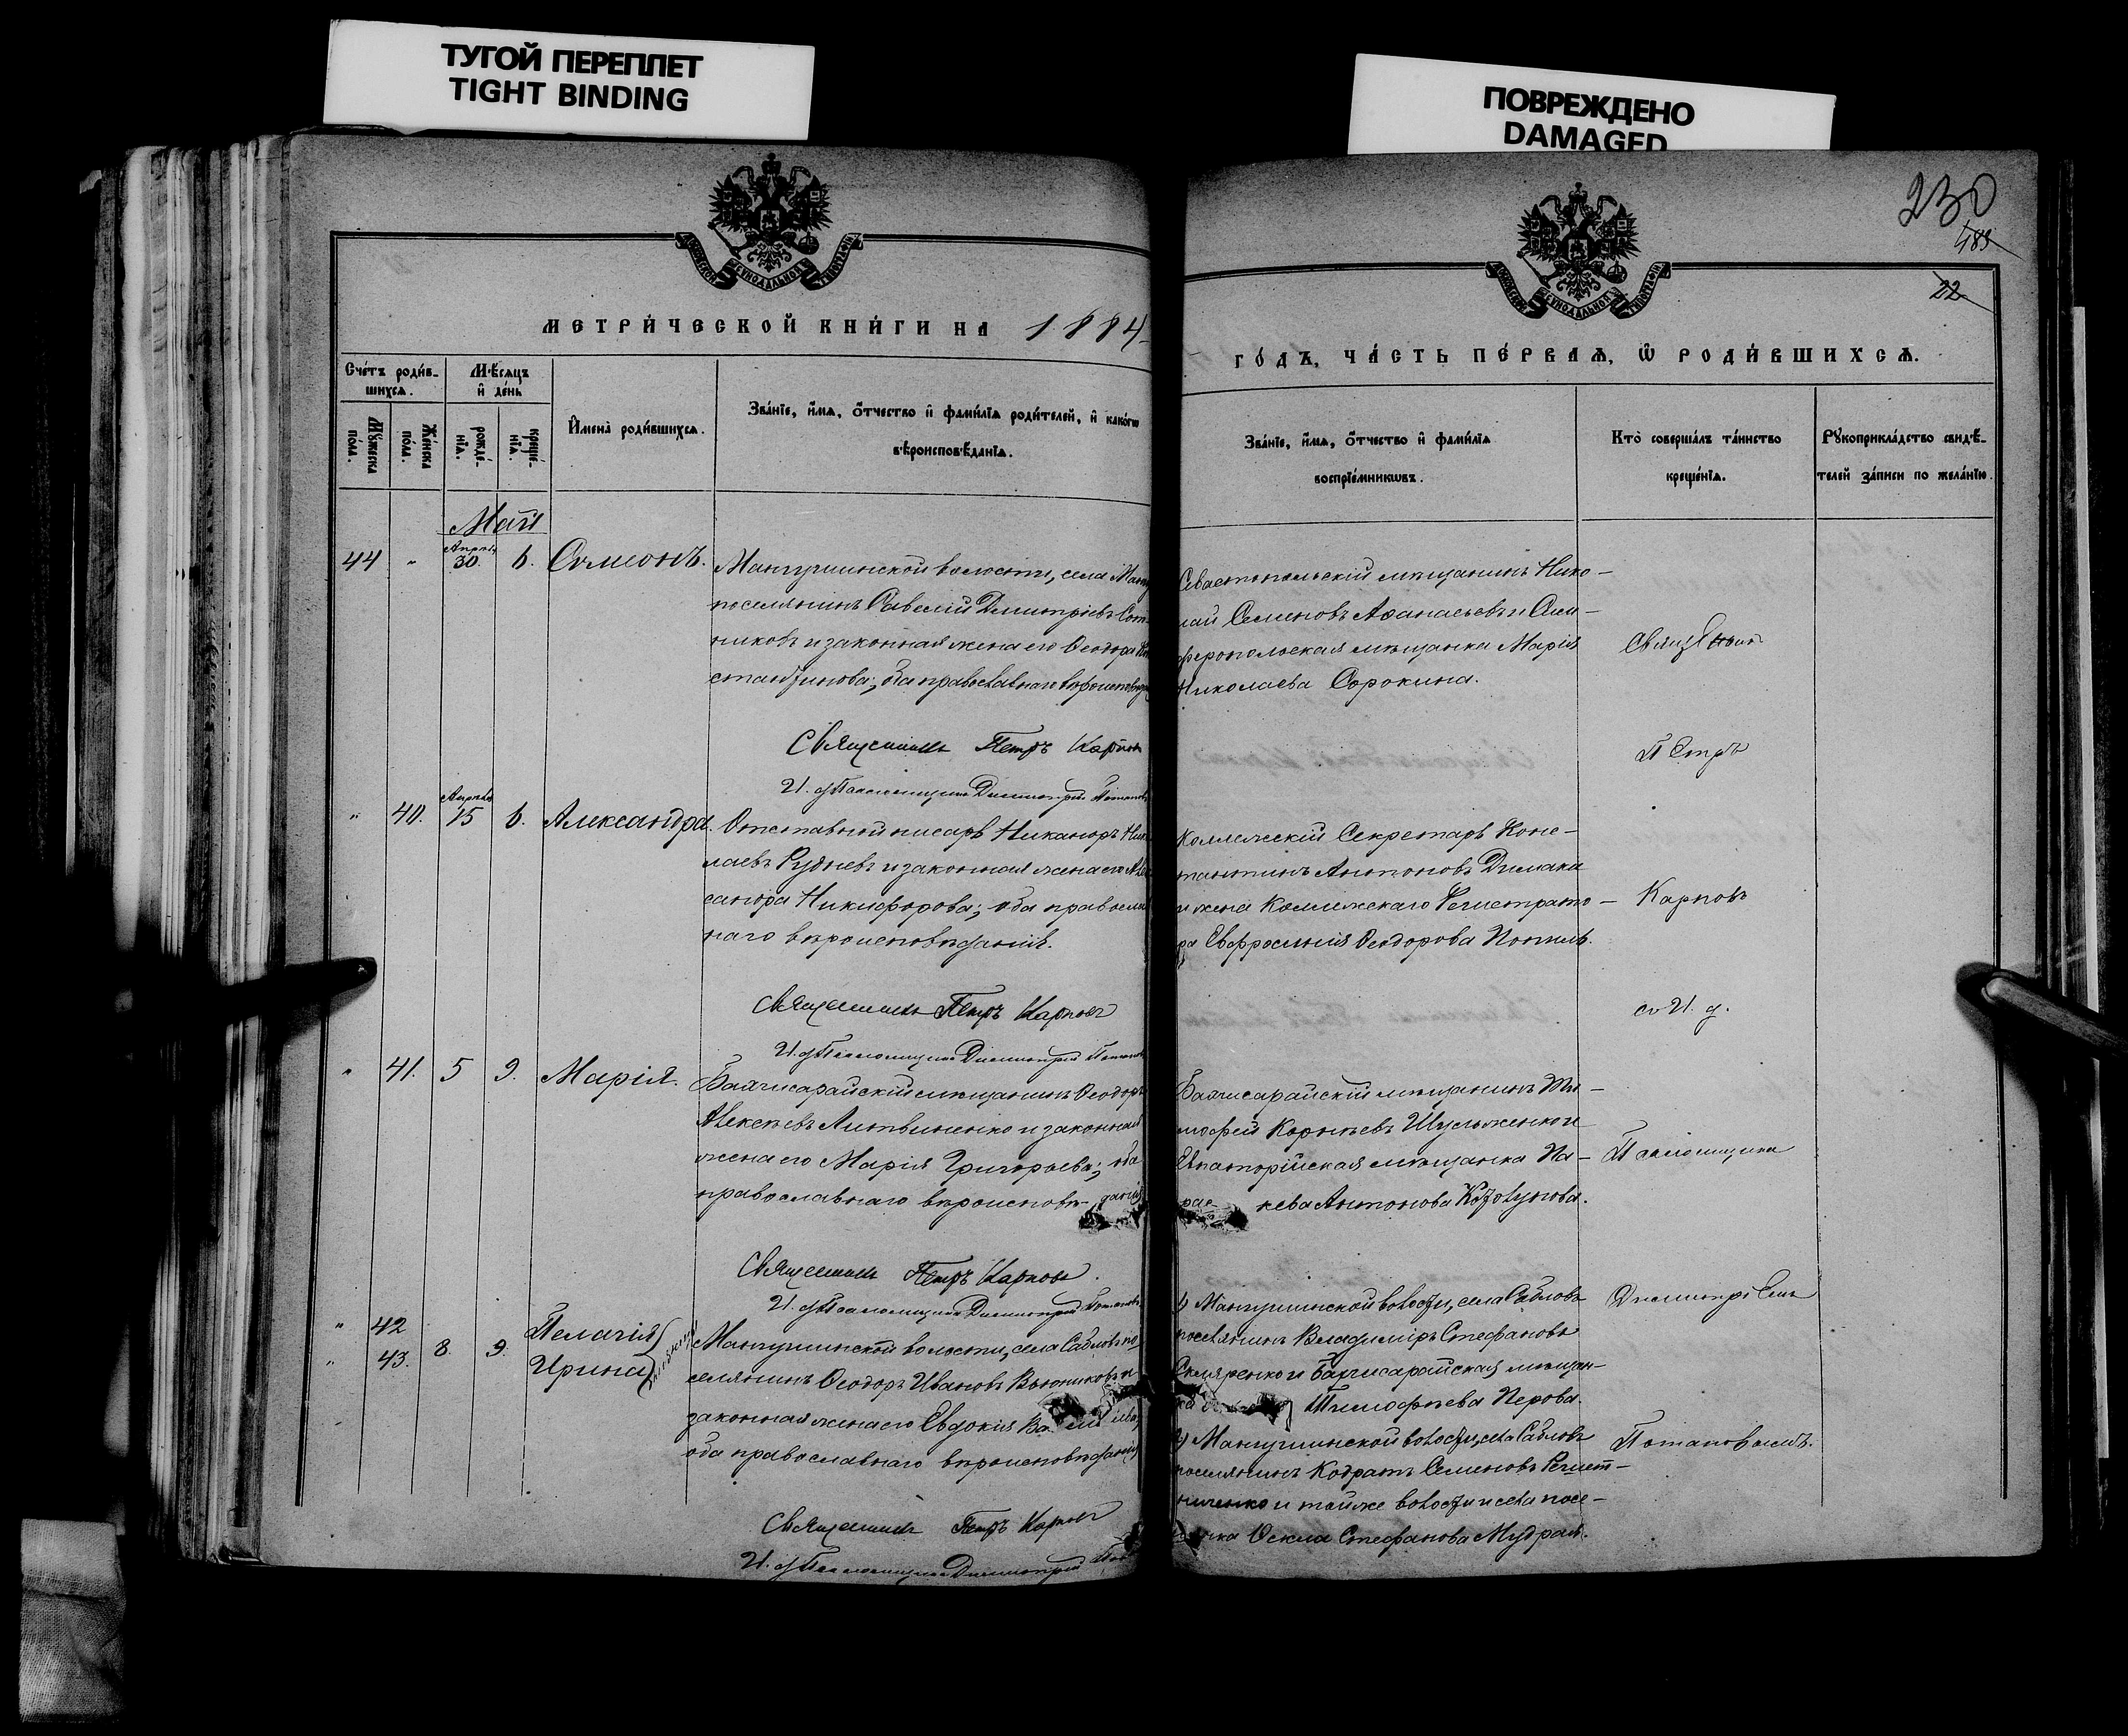 ТУГОЙ ПЕРЕПЛЕТ
TIGHT BINDING
ПОВРЕЖДЕНО
DAMAGED
230
489
22
МОСКОВСКОЙ СУНОДАЛЬНОЙ ТИПОГРАФІИ
МОСКОВСКОЙ СУНОДАЛЬНОЙ ТИПОГРАФІИ
МЕТРИ́ЧЕСКОЙ КНИ́ГИ НА 1884
ГО́ДЪ, ЧА́СТЬ ПЕ́РВАѦ, Ѽ РОДИ́ВШИХСѦ.
Сче́тъ роди́в-
шихсѧ.
Мꙋ́жеска по́ла.
Же́нска по́ла.
Мѣ́сѧцъ
и҆ де́нь
рожде́-
нїѧ.
креще́-
нїѧ.
И҆мена̀ роди́вшихсѧ.
Зва́нїе, и҆́мѧ, ѻ҆́тчество и҆ фами́лїѧ роди́телей, и҆ како́гѡ
вѣроисповѣ́данїѧ.
Зва́нїе, и҆́мѧ, ѻ҆́тчество и҆ фами́лїѧ
воспрїе́мникѡвъ.
Кто̀ соверша́лъ та́инство
креще́нїѧ.
Рꙋкоприкла́дство свидѣ́-
телей за́писи по жела́нїю.
Май
44 " Апрѣл 30. 6. Сѵмеонъ.
Мангушинской волости, села Манг
поселянинъ Савелій Димитріевъ Сот-
никовъ и законная жена его Ѳеодора Кон
стантинова; оба православнаго вѣроисповѣд
Священникъ Петръ Карповъ
И. д. Псаломщика Димитрій Потаповъ
Севастопольскій мѣщанинъ Нико-
лай Семеновъ Аѳанасьевъ и Сим-
феропольская мѣщанка Марія
Николаева Сорокина.
Священ
Петръ
" 40. Апрѣля 15 6. Александра.
Отставной писарь Никаноръ Нико
лаевъ Рудневъ и законная жена его Алек
сандра Никифорова; оба православ
наго вѣроисповѣданія.
Священникъ Петръ Карповъ
И. д. Псаломщика Димитрій Потапов
Коллежскій Секретарь Конс-
тантинъ Антоновъ Димаки
и жена Коллежскаго Регистрато-
ра Евфросинія Ѳеодорова
Карповъ
съ И. д.
" 41. 5 9. Марія.
Бахчисарайскій мѣщанинъ Ѳеодоръ
Алексѣевъ Литвиненко и законная
жена его Марія Григорьева; оба
православнаго вѣроисповѣ- данія
Священникъ Петръ Карповъ.
И. д. Псаломщика Димитрій Потаповъ
Бахчисарайскій мѣщанинъ Ти-
мофей Корнѣевъ Шульженко и
Евпаторійская мѣщанка Па-
рас- кева Антонова
Псаломщика
" 42
" 43. 8. 9. Пелагія
Ирина
Мангушинской волости, села Сабловъ по
селянинъ Ѳеодоръ Ивановъ Вьюниковъ и
законная жена его Евдокія
оба православнаго вѣроисповѣданія
Священникъ Петръ Карповъ
И. д. Псаломщика Димитрій Пот
1) Мангушинской волости, села Сабловъ
поселянинъ Владиміръ Стефановъ
Скляренко и Бахчисарайская мѣщан-
ка Тимофѣева Перова.
2) Мангушинской волости, села Сабловъ
поселянинъ Кодратъ Семеновъ
и тойже волости и села посе-
лянка Ѳекла Стефанова Мудрая.
Димитріемъ
Потаповымъ.